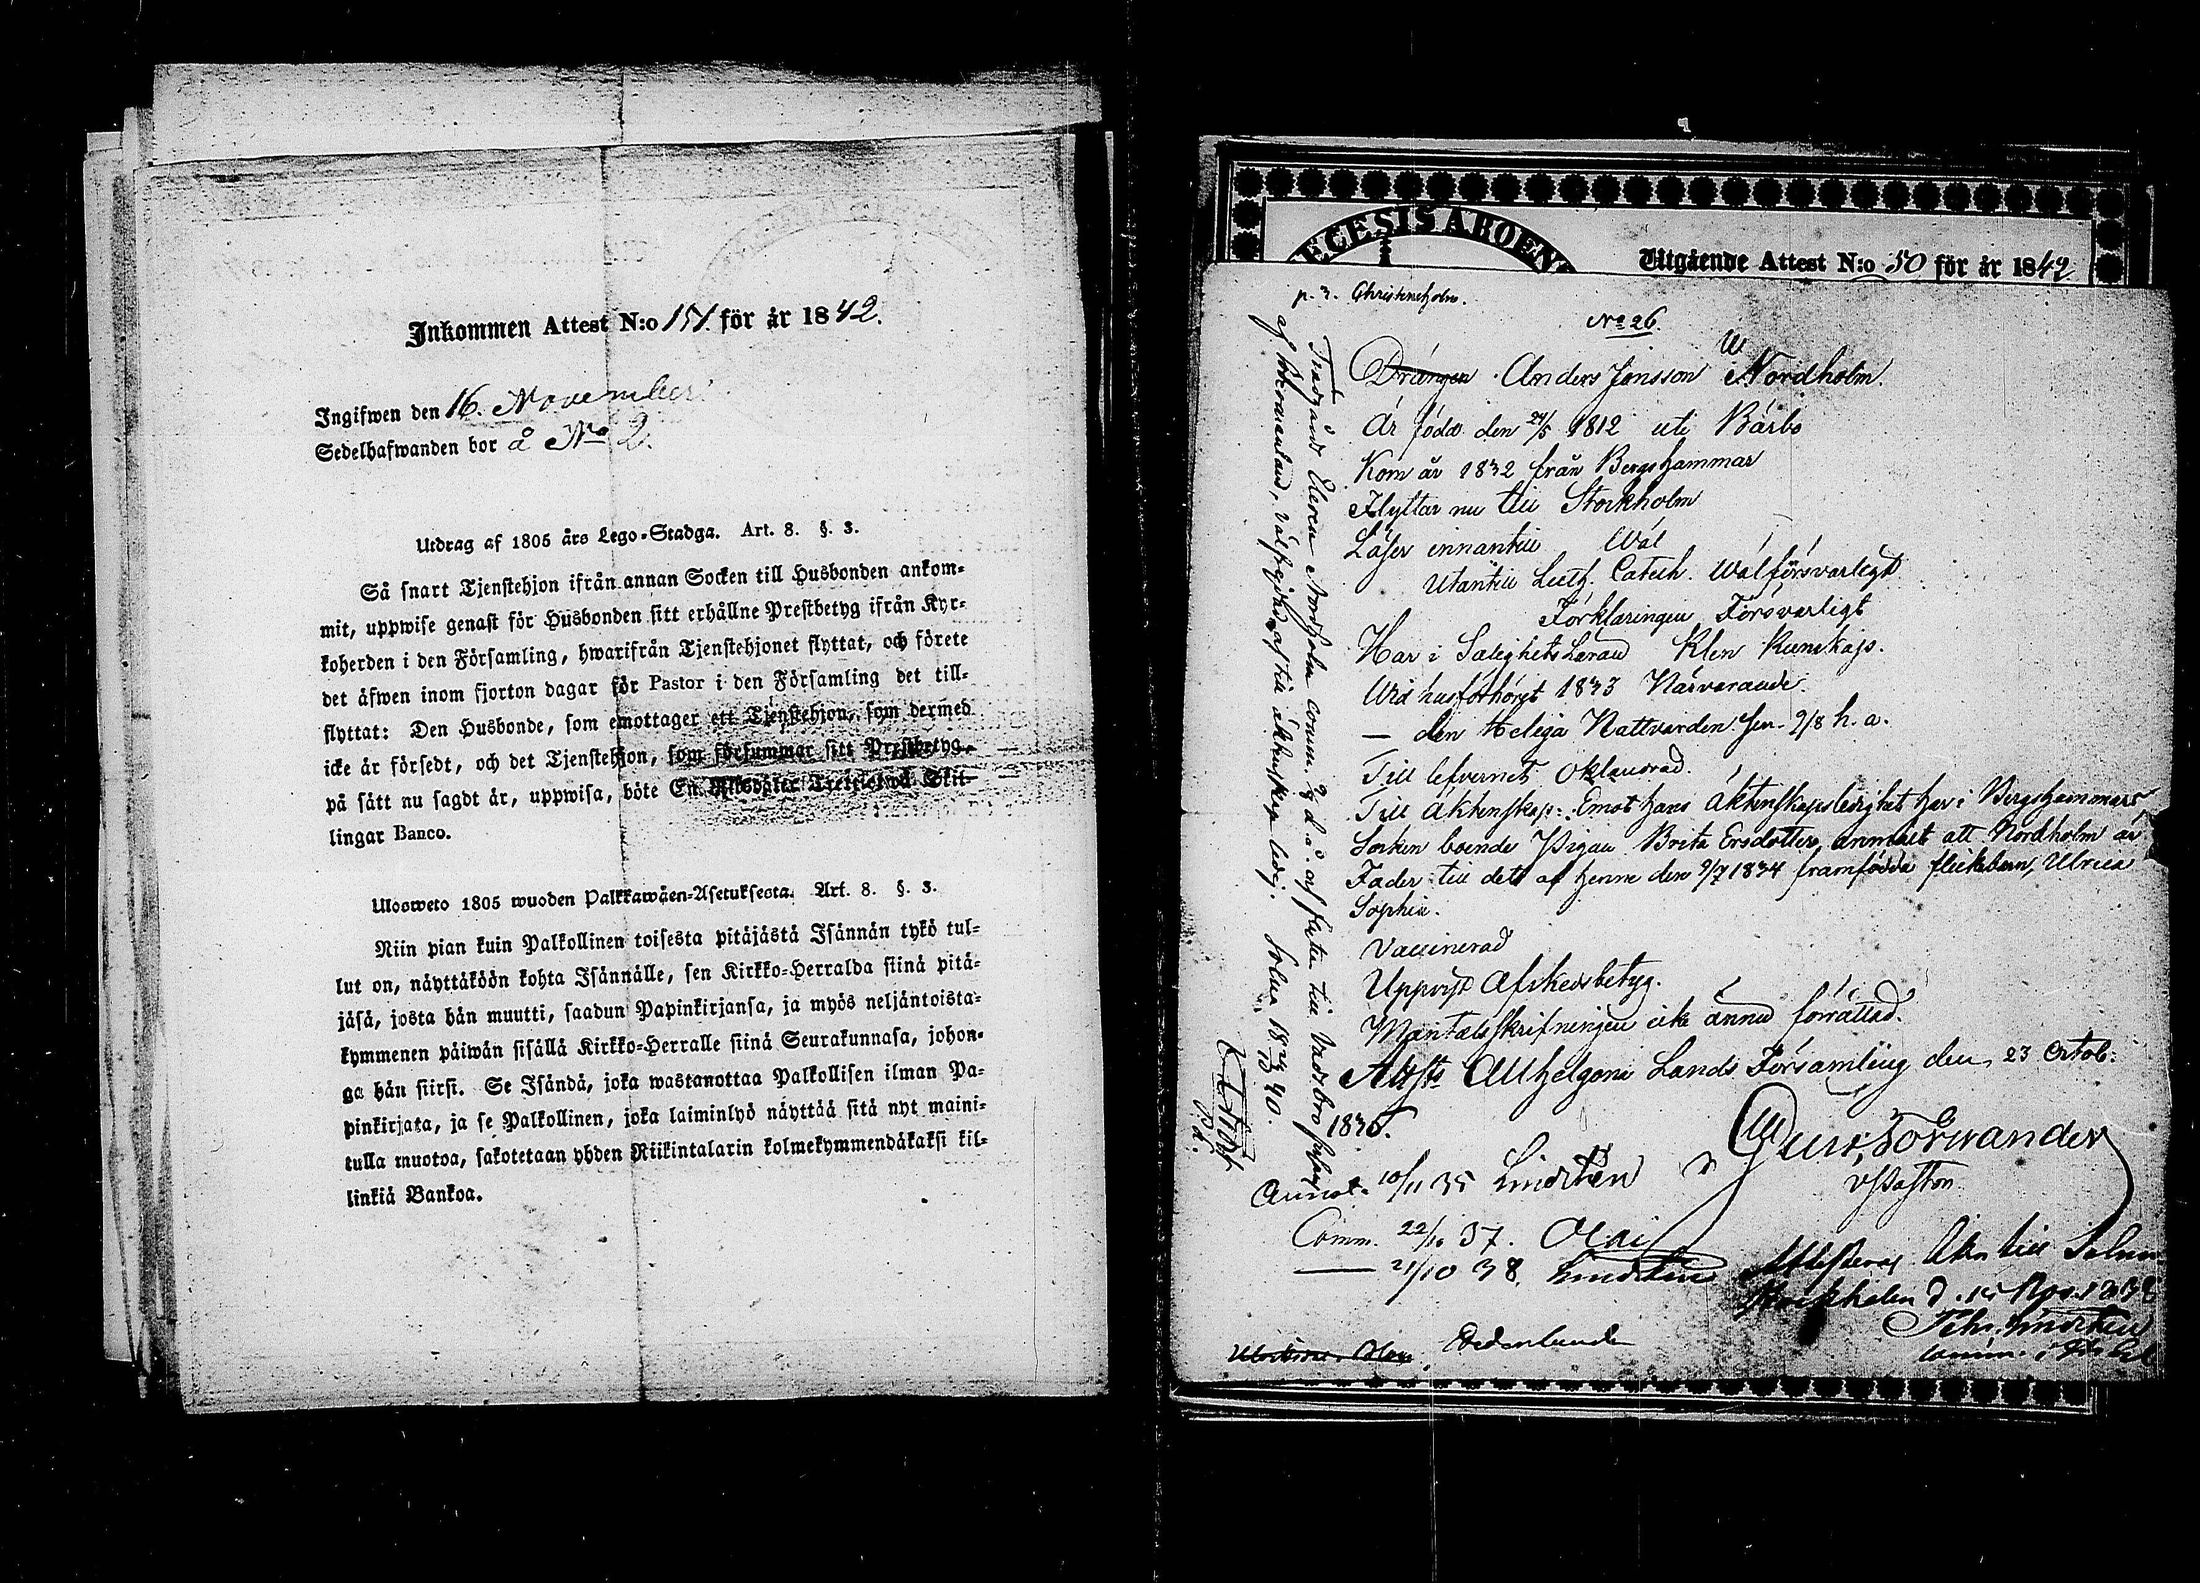 Inkommen Attest N:o 151. för år 1842.
Ingifwen den 16. November
Sedelhafwanden bor å No 2.
Utdrag af 1805 års Lego-Stadga. Art. 8. §. 3.
Så snart Tjenstehjon ifrån annan Socken till Husbonden ankom-
mit, uppwise genast för Husbonden sitt erhållne Prestbetyg ifrån Kyr-
koherden i den Församling, hwarifrån Tjenstehjonet flyttat, och förete
det äfwen inom fjorton dagar för Pastor i den Församling det till-
flyttat: Den Husbonde, som emottager ett Tjenstehjon, som dermed
icke är försedt, och det Tjenstehjon, som försummar sitt Prestbetyg,
på sätt nu sagdt är, uppwisa, böte En Riksdaler Trettiotwå Skil-
lingar Banco.
Ulosweto 1805 wuoden Palkkawäen-Asetuksesta. Art. 8. §. 3.
Niin pian kuin Palkollinen toisesta pitäjästä Isännän tykö tul-
lut on, näyttäköön kohta Isännälle, sen Kirkko-Herralda siinä pitä-
jäsä, josta hän muutti, saadun Papinkirjansa, ja myös neljäntoista-
kymmenen päiwän sisällä Kirkko-Herralle siinä Seurakunnasa, johon-
ga hän siirsi. Se Isändä, joka wastanottaa Palkollisen ilman Pa-
pinkirjata, ja se Palkollinen, joka laiminlyö näyttää sitä nyt maini-
tulla muotoa, sakotetaan yhden Riikintalarin kolmekymmendäkaksi kil-
linkiä Bankoa.
ECESIS ABOEN
Utgående Attest N:o 50 för år 1842
p. 3. Christineholm.
No 26.
Drängen Anders Jonsson Nordholm.
Är född den 24/5 1812 uti Bärbo
Kom år 1832 från Bergshammar
Flyttar nu till Stockholm
Läser innantill Wäl
Utantill Luth. Catech. Wälförsvarligt
Förklaringen Försvarligt
Har i Salighets Läran Klen Kunskap.
Wid husförhöret 1833 Närvarande.
— den Heliga Nattvarden sen 9/8 h. a.
Till lefvernet Oklandrad.
Till Äktenskap: Emot hans äktenskapsledighet har i Bergshammars
Socken boende Pigan Brita Ersdotter anmält att Nordholm är
Fader till det af henne den 9/7 1834 framfödda flickebarn, Ulrica
Sophia.
Vaccinerad
Uppvist Afskedsbetyg.
Mantalsskrifningen icke ännu förrättad.
Attst. Allhelgona Lands Församling den 23 Octob:
1835.
Törwander
v Pastor
Annot. 10/11 35 Lindsten
Comm. 22/10 37.
— 21/10 38. Lindsten
Trädgårds Eleven Nordholm comm.
äktenskap ledig. Solna